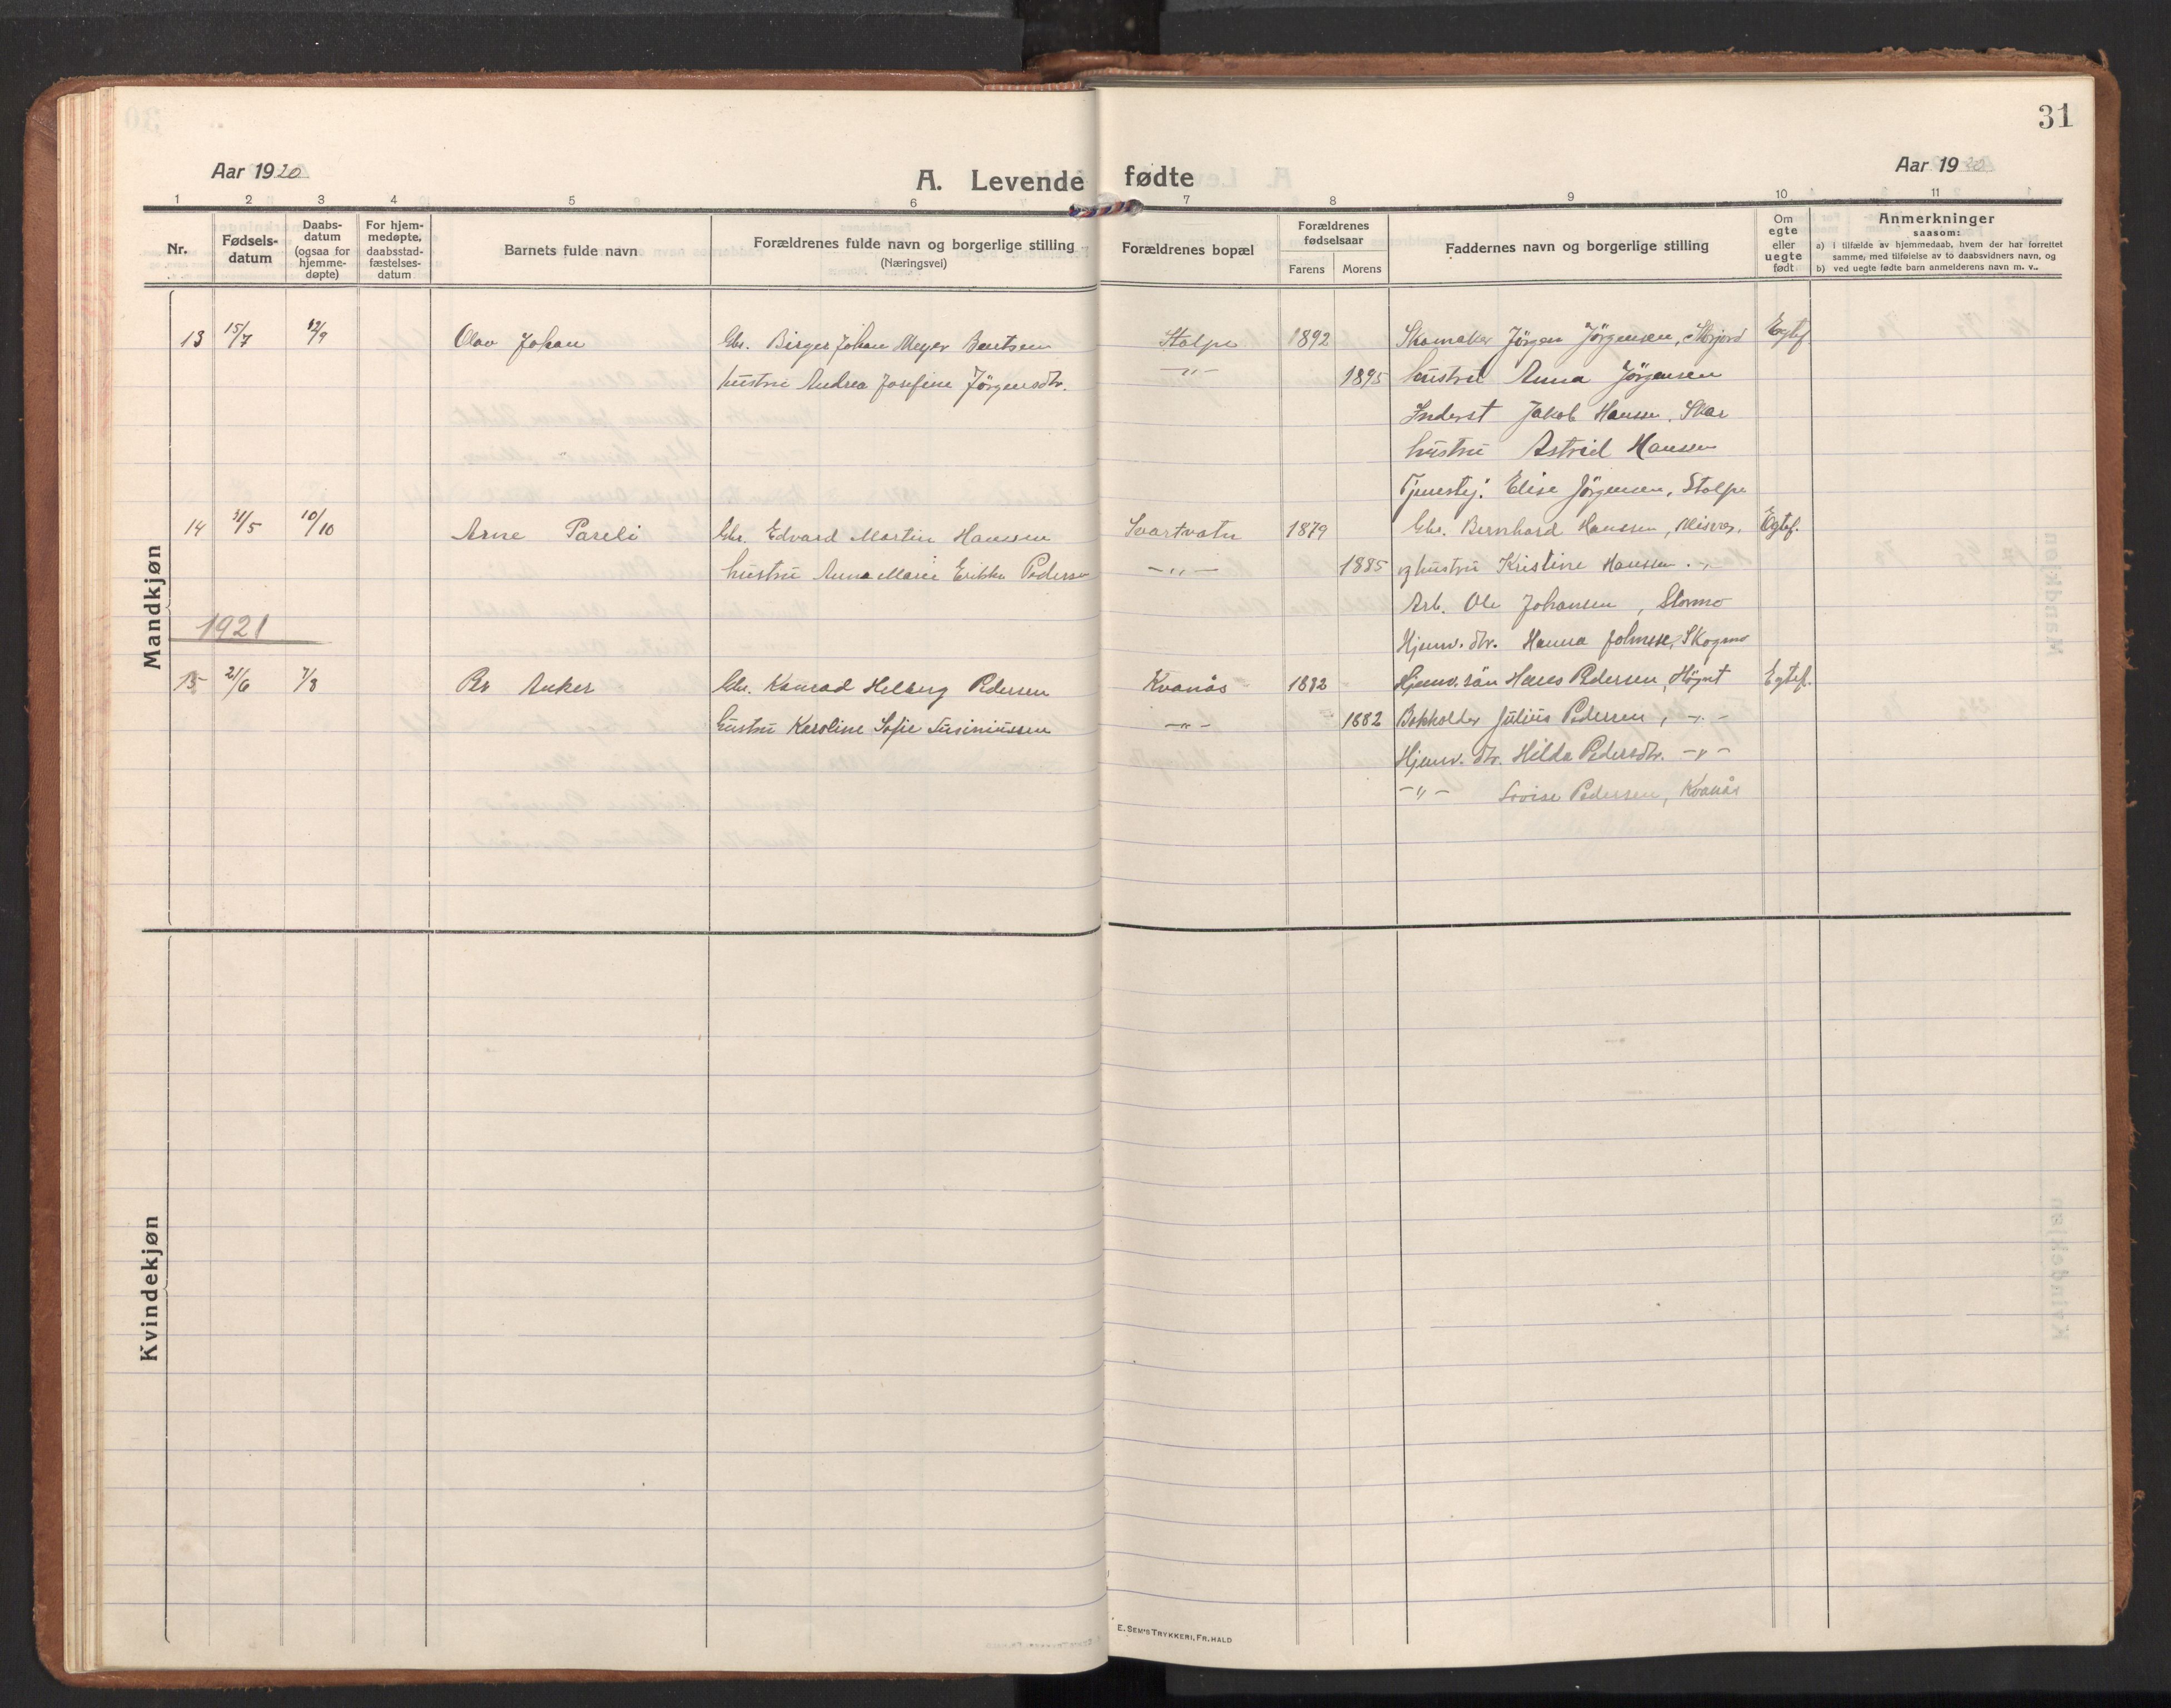 31
Aar 1920 A. Levende fødte Aar 1920
1 2 3 4 5 6 7 8 9 10 11
Nr. Fødsels-datum Daabs-datum (ogsaa for hjemme-døpte) For hjem-medøpte, daabsstad-fæstelses-datum Barnets fulde navn Forældrenes fulde navn og borgerlige stilling (Næringsvei) Forældrenes bopæl Forældrenes fødselsaar Farens Morens Faddernes navn og borgerlige stilling Om egte eller uegte født Anmerkninger saasom:
a) i tilfælde av hjemmedaab, hvem der har forrettet samme, med tilføielse av to daabsvidners navn, og
b) ved uegte fødte barn anmelderens navn m. v..
Mandkjøn
13 15/7 12/9 Olav Johan Gbr. Birger Johan Meyer Bentsen Stolpe 1892 Skomaker Jörgen Jörgensen, Storjord Egtef.
hustru Andrea Josefine Jörgensdtr. -"- 1895 hustru Anna Jörgensen
Inderst Jakob Hansen, Skar
hustru Astrid Hansen
Tjenestej. Elise Jörgensen, Stolpe
14 31/5 10/10 Arne Pareli Gbr. Edvard Martin Hanssen Svartvatn 1879 Gbr. Bernhard Hanssen, Misvær. Egtef.
hustru Anna Marie Erikka Pedersen -"- 1885 og hustru Kristine Hanssen -"-
Arb. Ole Johansen, Stormo
1921 Hjemv. dtr. Hanna Johnsen, Skogmo
15 21/6 7/8 Per Anker Gbr. Konrad Helberg Pedersen Kvanås 1882 Hjemv. sön Hans Pedersen, Högset Egtef.
hustru Karoline Sofie -"- 1882 Bokholder Julius Pedersen, -"-
Hjemv. dtr. Hilda Pedersdtr. -"-
-"- Lovise Pedersen, Kvanås
Kvindekjøn
E. SEM'S TRYKKERI, FR.HALD